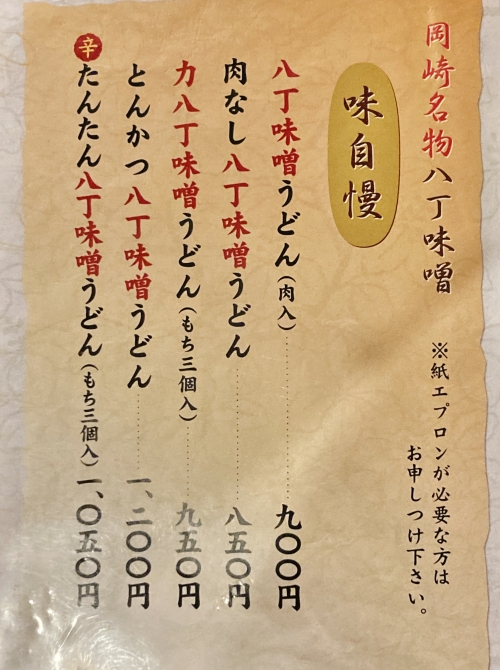 岡崎名物八丁味噌
※紙エプロンが必要な方は
お申しつけ下さい。
味自慢
八丁味噌うどん（肉入）九〇〇円
肉なし八丁味噌うどん 八五〇円
力八丁味噌うどん（もち三個入）九五〇円
とんかつ八丁味噌うどん 一、二〇〇円
辛 たんたん八丁味噌うどん（もち三個入）一、〇五〇円